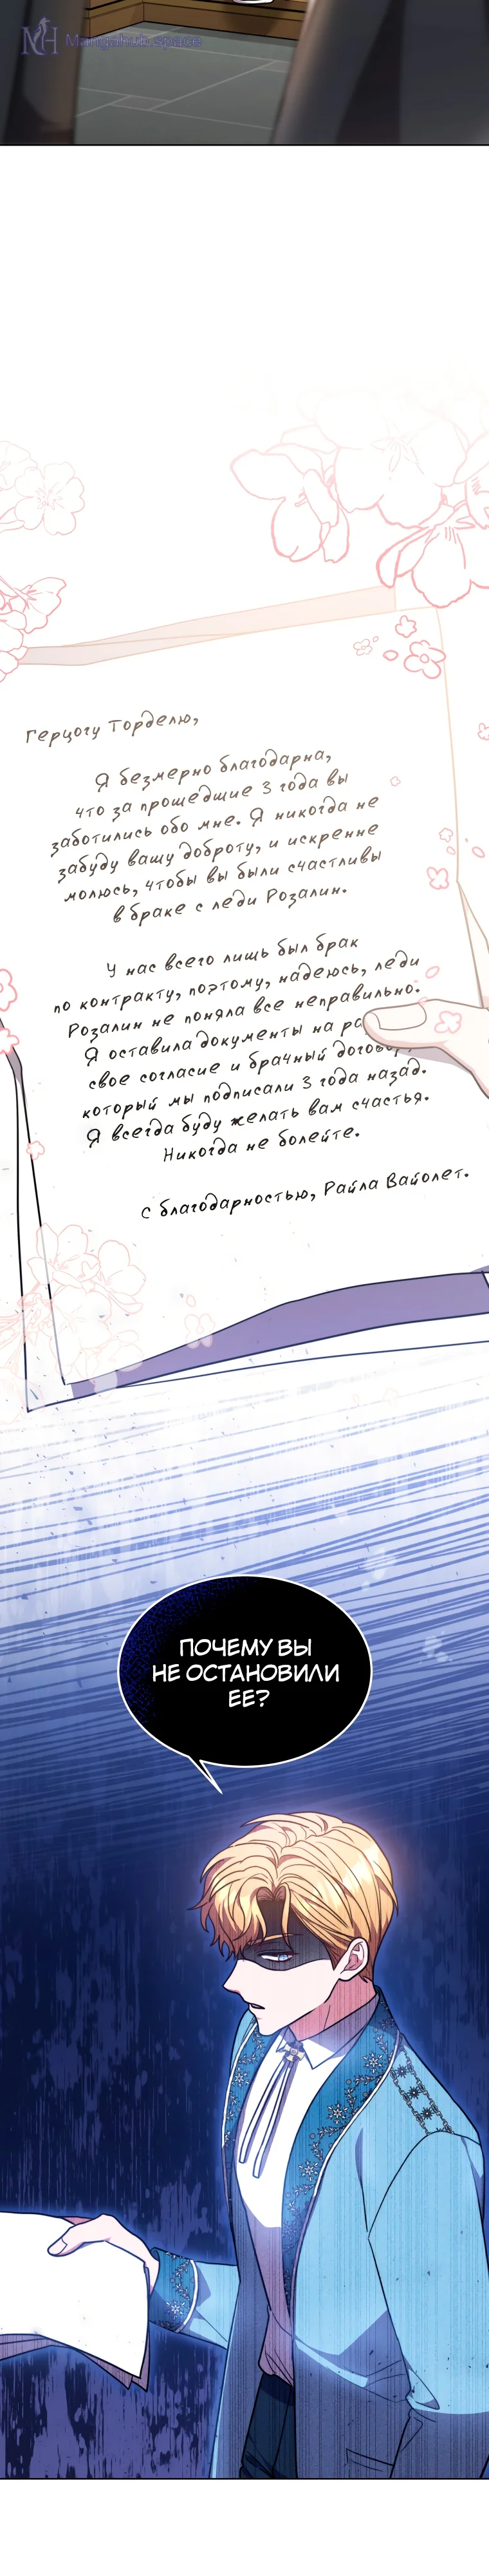 Mangahub.space
Герцогу Торделю,
Я безмерно благодарна,
что за прошедшие 3 года вы
заботились обо мне. Я никогда не
забуду вашу доброту, и искренне
молюсь, чтобы вы были счастливы
в браке с леди Розалин.
У нас всего лишь был брак
по контракту, поэтому, надеюсь, леди
Розалин не поняла все неправильно.
Я оставила документы на ра
свое согласие и брачный договор,
который мы подписали 3 года назад.
Я всегда буду желать вам счастья.
Никогда не болейте.
С благодарностью, Райла Вайолет.
ПОЧЕМУ ВЫ
НЕ ОСТАНОВИЛИ
ЕЕ?